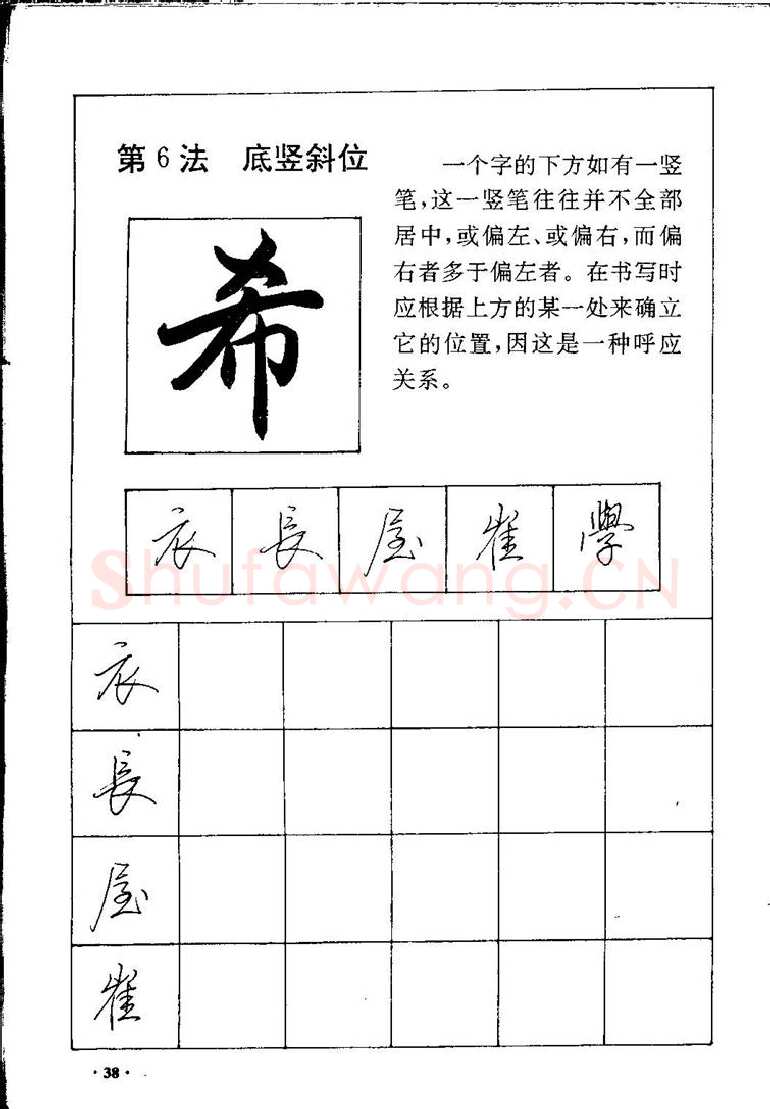 第6法 底竖斜位
一个字的下方如有一竖
笔,这一竖笔往往并不全部
居中,或偏左、或偏右,而偏
右者多于偏左者。在书写时
应根据上方的某一处来确立
它的位置,因这是一种呼应
关系。
希
衣 長 屋 崔 學
Shufawang.CN
衣
長
屋
崔
·38·